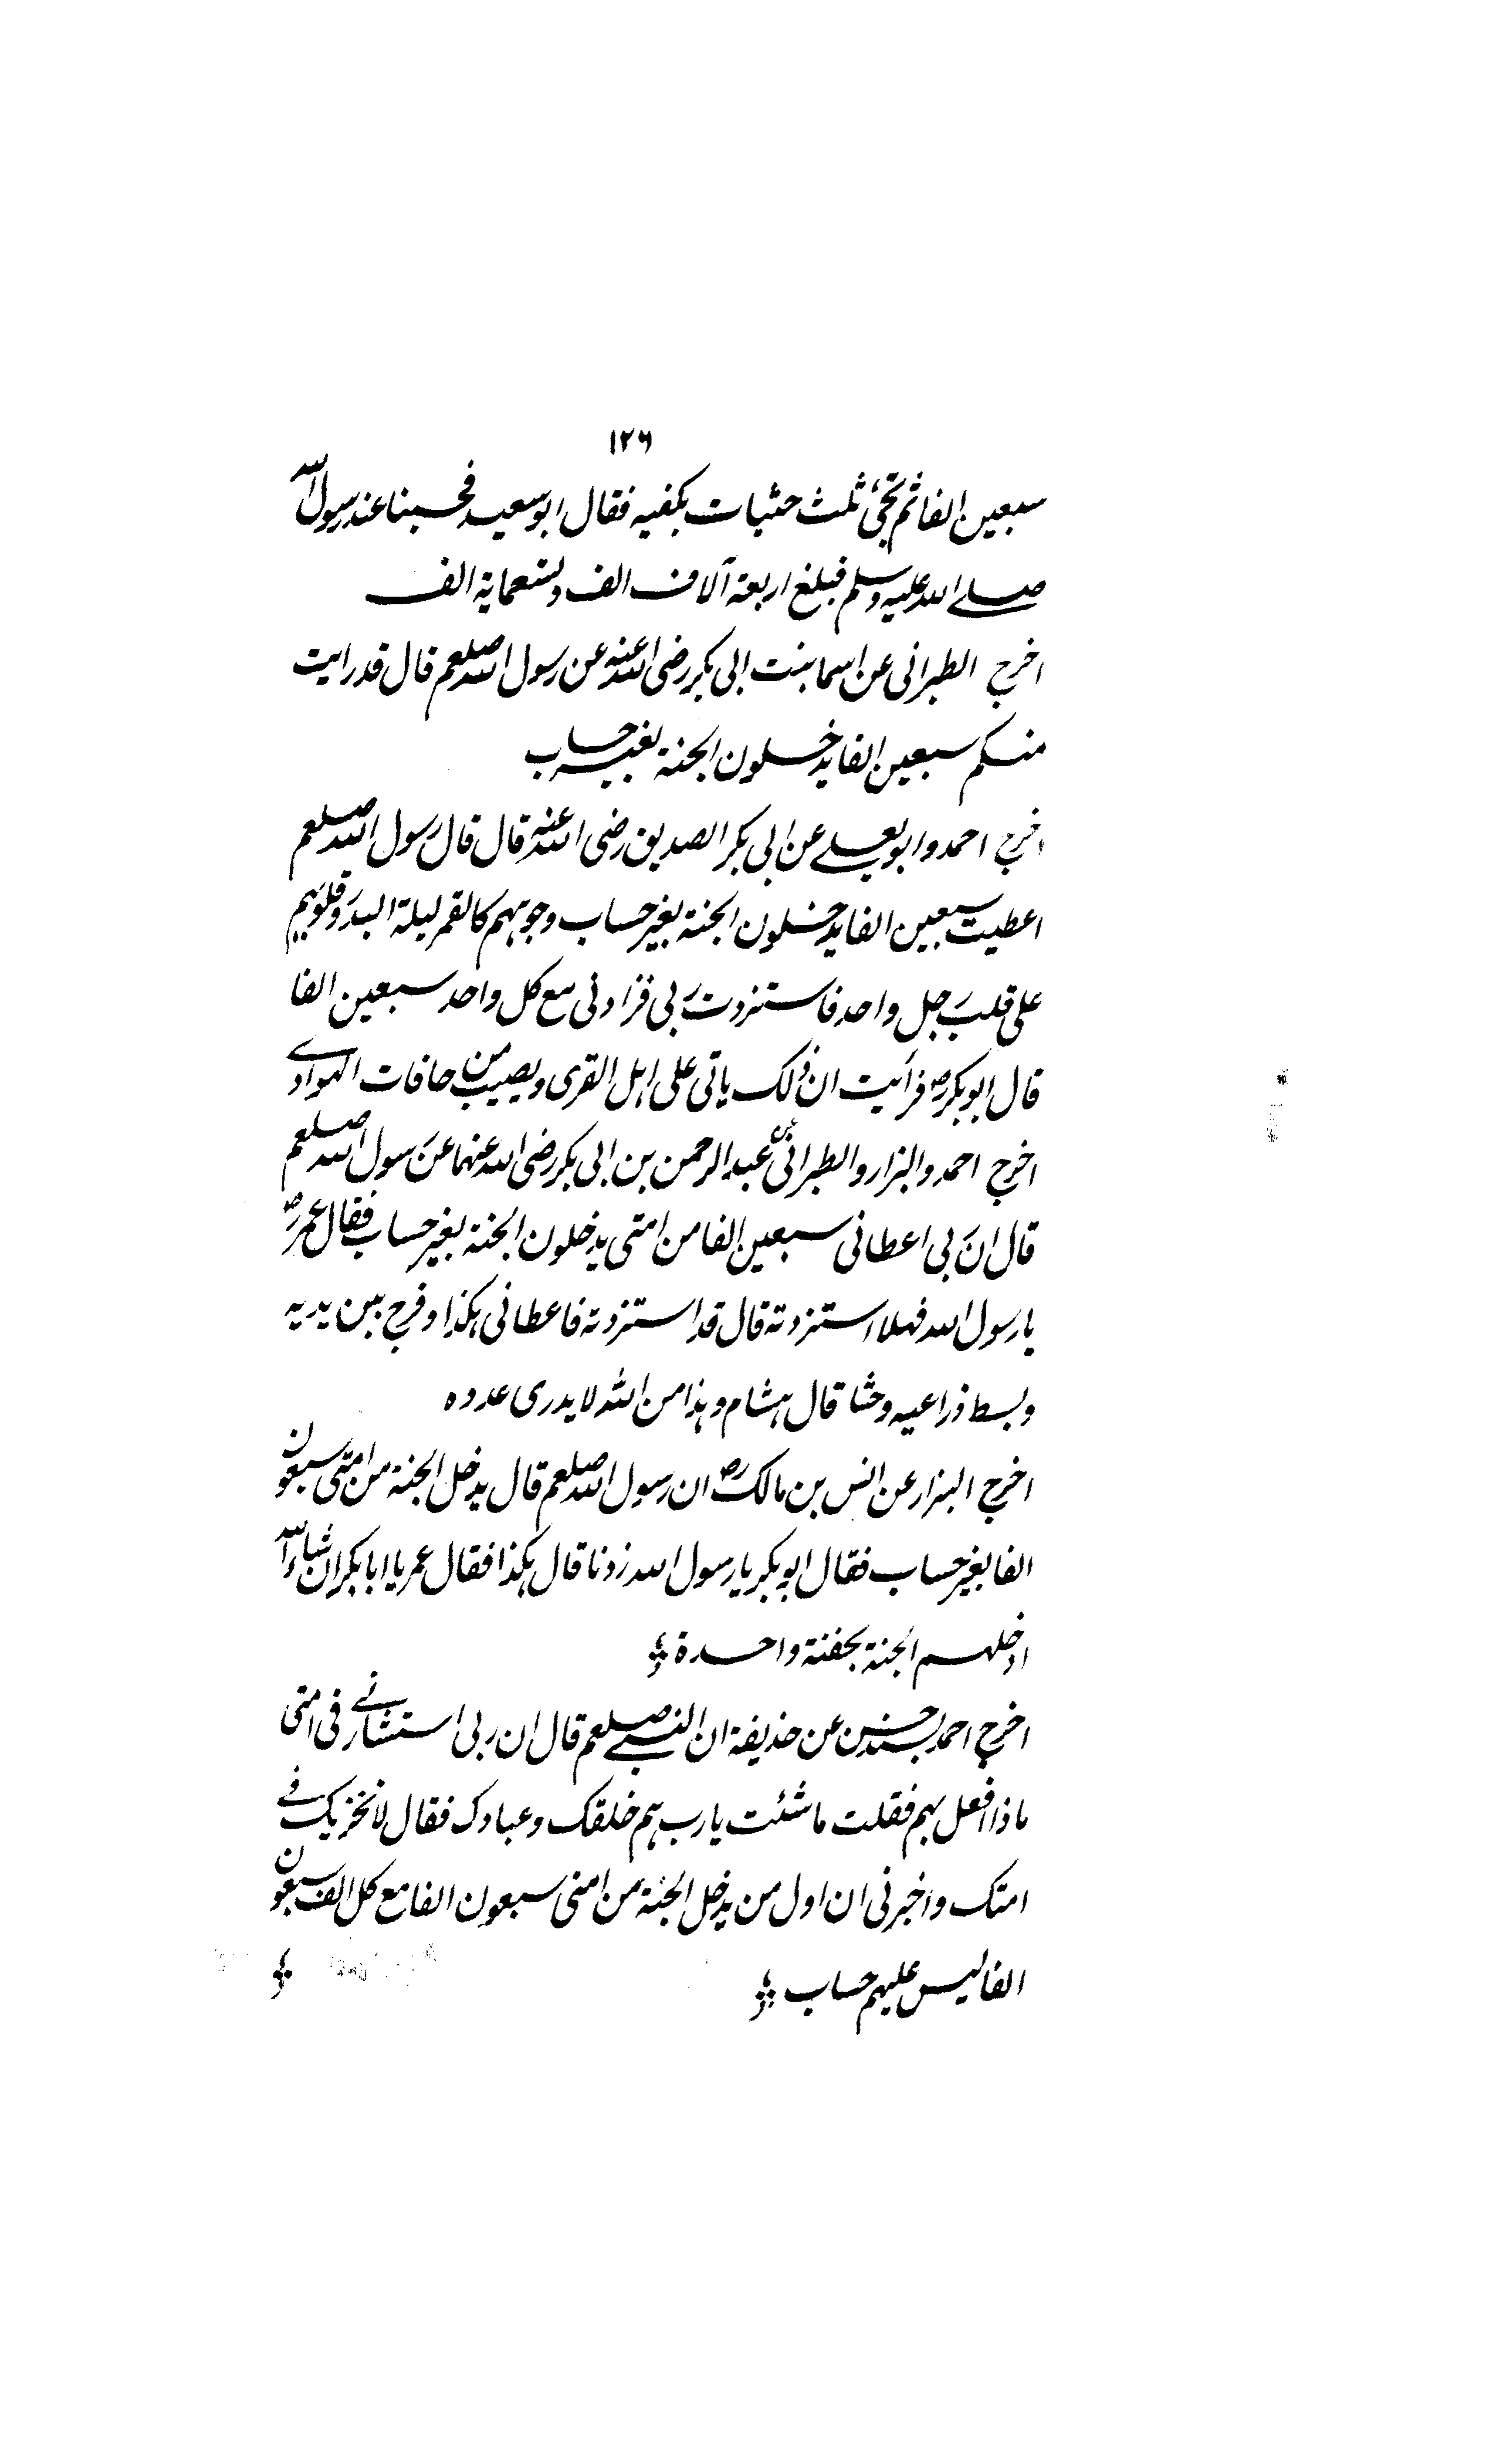 ۱۲۶
سبعین الفا ثم یحثی ثلث حثیات بکفیه فقال ابو سعید فحسبنا عند رسول الله
صلے الله علیه وسلم فبلغ اربعة آلاف الف وتسعمایة الف
اخرج الطبرانی عن اسما بنت ابی بکر رضی الله عنه عن رسول الله صلعم قال قد رایت
منکم سبعین الفا یدخلون الجنة بغیر حساب
اخرج احمد وابو یعلے عن ابی بکر الصدیق رضی الله عنه قال قال رسول الله صلعم
اعطیت سبعین الفا یدخلون الجنة بغیر حساب وجوههم کالقمر لیلة البدر وقلوبهم
علی قلب رجل واحد فاستزدت ربی فزادنی مع کل واحد سبعین الفا
قال ابو بکر رض فرأیت ان ذلک یاتی علی اهل القری ویصیب من حافات البوادے
اخرج احمد والبزار والطبرانی عن عبد الرحمن بن ابی بکر رضی الله عنهما عن رسول الله صلعم
قال ان ربی اعطانی سبعین الفا من امتی یدخلون الجنة بغیر حساب فقال عمر رض
یا رسول الله فهلا استزدته قال قد استزدته فاعطانی هکذا وفرج بین یدیه
وبسط ذراعیه وحثا قال هشام وهذا من الله لا یدری عدده
اخرج البزار عن انس بن مالک رض ان رسول الله صلعم قال یدخل الجنة من امتی سبعون
الفا بغیر حساب فقال ابو بکر یا رسول الله زدنا قال هکذا فقال عمر یا ابا بکر ان شاء الله
ادخلهم الجنة بحفنة واحدة
اخرج احمد بسند حسن عن حذیفة ان النبے صلعم قال ان ربی استشارنے فی امتی
ماذا افعل بهم فقلت ما شئت یا رب هم خلقک وعبادک فقال لا نخزیک فے
امتک واخبرنی ان اول من یدخل الجنة من امتی سبعون الفا مع کل الف سبعون
الفا لیس علیهم حساب